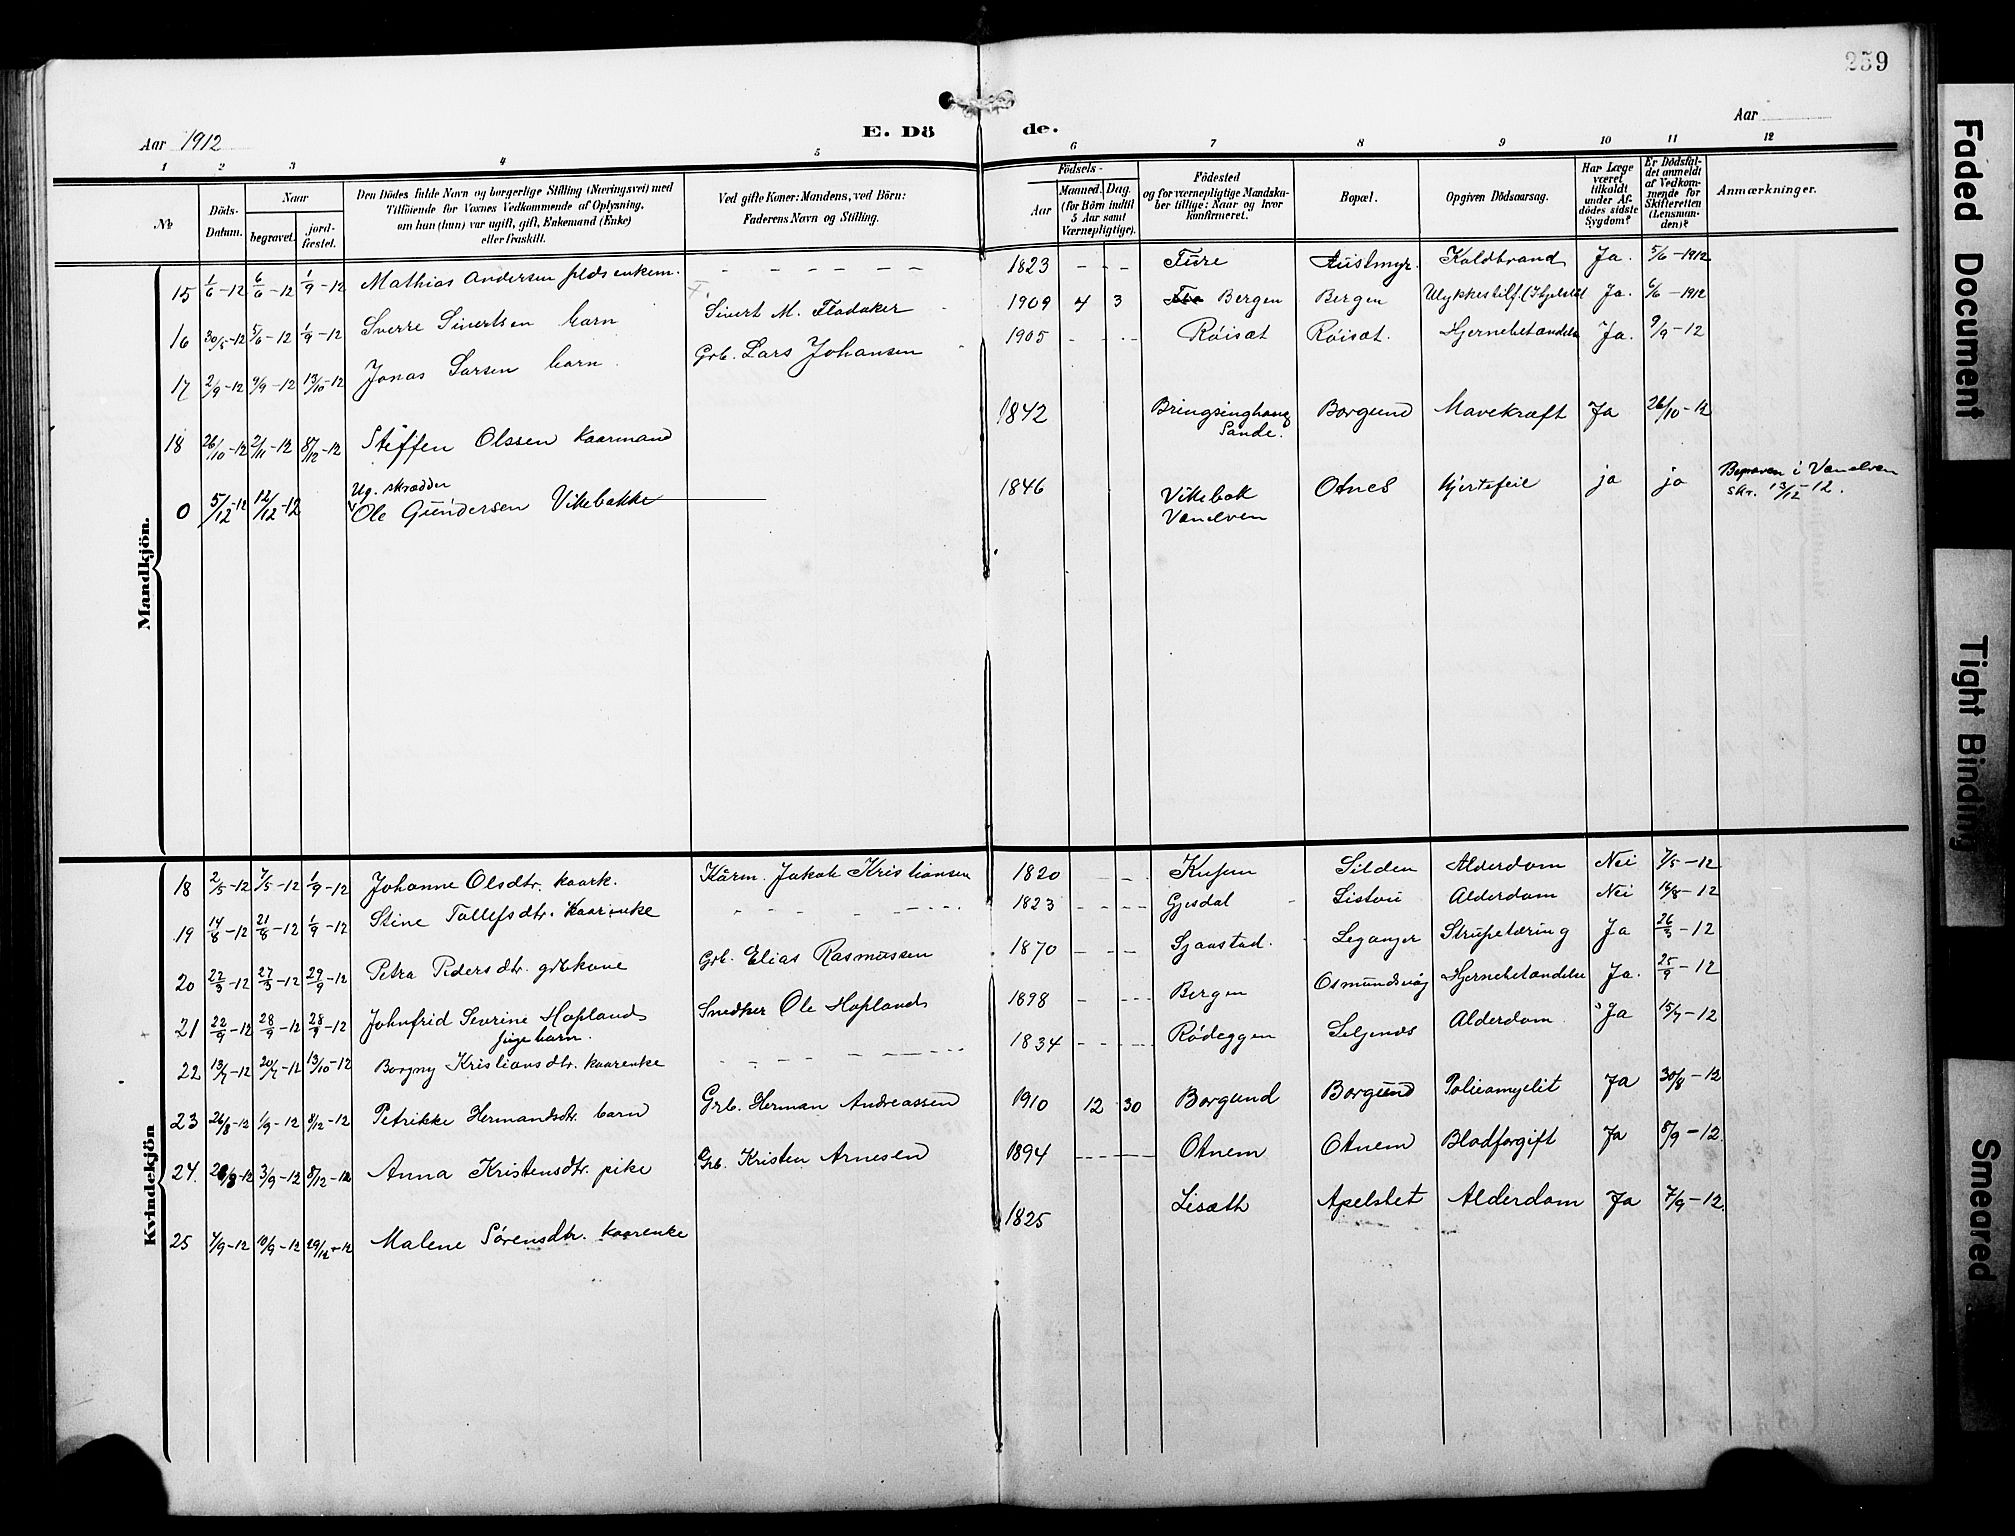 259
Aar 1912
E. Dö de.
Aar
1 2 3 4 5 6 7 8 9 10 11 12
No
Döds-Datum.
Naar
begravet.
jord-fæstet.
Den Dödes fulde Navn og borgerlige Stilling (Næringsvei) med
Tilföiende for Voxnes Vedkommende af Oplysning,
om han (hun) var ugift, gift, Enkemand (Enke)
eller fraskilt.
Ved gifte Koner: Mandens, ved Börn:
Faderens Navn og Stilling.
Födsels-
Aar
Maaned. Dag.
(for Börn indtil
5 Aar samt
Værnepligtige).
Födested
og for værnepligtige Mandska-
ber tillige: Naar og hvor
konfirmeret.
Bopæl.
Opgiven Dödsaarsag.
Har Læge
været
tilkaldt
under Af-
dödes sidste
Sygdom?
Er Dödsfal-
det anmeldt
af Vedkom-
mende for
Skifteretten
(Lensman-
den)?
Anmærkninger.
Mandkjön.
15 1/6-12 6/6-12 1/9-12 Mathias Andersen fleds enkem. - - - - - - 1823 - - - Fure Austmyr. Koldbrand Ja. 5/6-1912
16 30/5-12 5/6-12 1/9-12 Sverre Sivertsen barn Sivert M. Flodaker 1909 4 3 Bergen Bergen Ja. 6/6-1912
17 2/9-12 9/9-12 13/10-12 Jonas Larsen barn Grb. Lars Johansen 1905 - - - Røisæt Røisæt. Hjernebetændelse Ja. 9/9-12
18 26/10-12 2/11-12 8/12-12 Steffen Olssen Kaarmand 1842 Bringsinghaug Sande. Borgund Mavekræft Ja 26/10-12
Ug. skrædder
0 5/12-12 12/12-12 Ole Gundersen Vikebakke 1846 Vikebak Vanelven Otnes Hjertefeil ja ja Begraven i Vanelven skr. 13/12-12.
Kvindekjön
18 2/5-12 7/5-12 1/9-12 Johanne Olsdtr. kaark. Kårm. Jakob Kristiansen 1820 - - Silden Alderdom Nei 7/5-12
19 14/8-12 21/8-12 1/9-12 Stine Tollefsdtr. Kaarenke - - - - - 1823 - - - Gjesdal Listou Alderdom Nei 16/8-12
20 22/3-12 27/3-12 29/9-12 Petra Pedersdtr. grbkone Grb. Elias Rasmussen 1870 - - - Sjaastad. Leganger Strupetæring Ja 26/3-12
21 22/9-12 28/9-12 28/9-12 Johnfrid Severine Hopland Snedker Ole Hopland 1898 - - - Bergen Osmundsvåg Hjernebetændelse Ja. 25/9-12
pige barn.
22 13/7-12 20/7-12 13/10-12 Borgny Kristiansdtr. kaarenke - - - - - 1834 - - - Rødeggen Seljenes Alderdom Ja 15/7-12
23 26/8-12 1/9-12 8/12-12 Petrikke Hermandsdtr. barn Grb. Herman Andreassen 1910 12 30 Borgund Borgund Polieomyelit Ja 30/8-12
24. 28/8-12 3/9-12 8/12-12 Anna Kristensdtr. pike Grb. Kristen Arnesen 1894 - - - Otnem Otnem Blodforgift Ja 8/9-12.
25 4/9-12 10/9-12 29/12-12 Malene Sørensdtr. kaarenke 1825 Lisæth Apelstet Alderdom Ja 7/9-12.
Faded Document
Tight Binding
Smeared